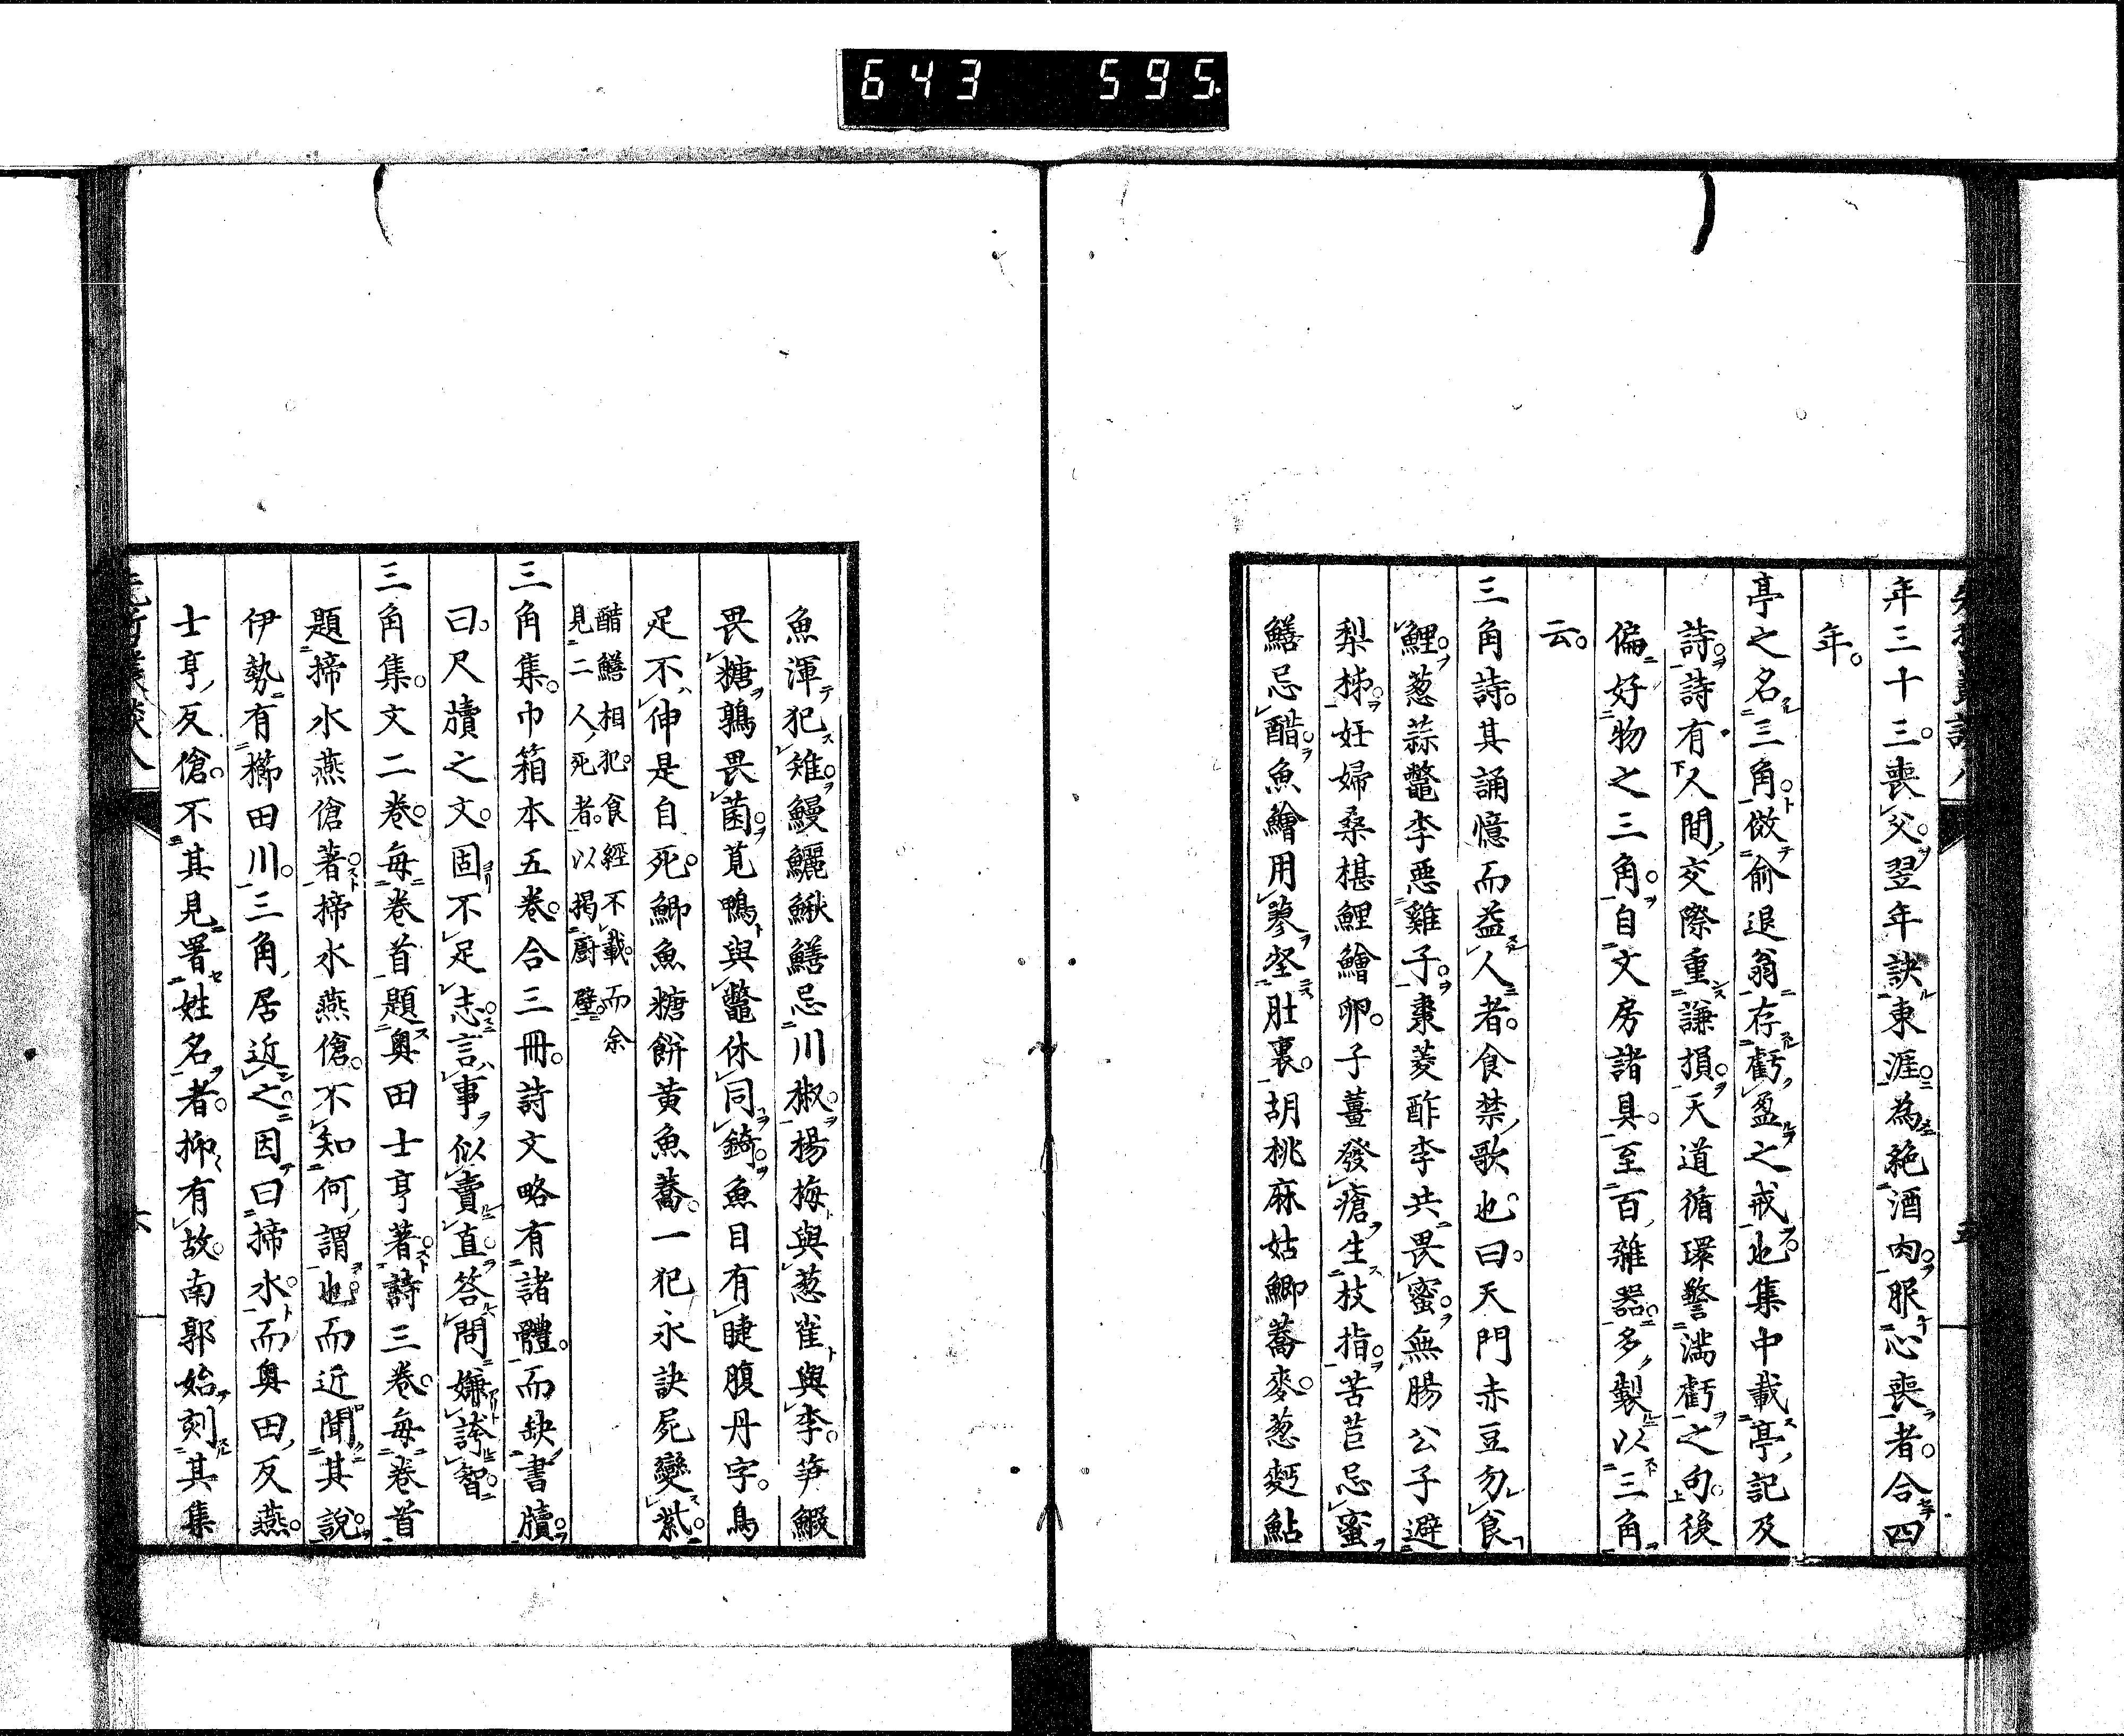 643 595
年三十三。喪父。翌年訣東涯。為絶酒肉。服心喪者。合四
年。
亭之名三角。倣俞退翁存虧盈之戒也。集中載亭記及
詩。詩有人間交際重謙損。天道循環警満虧之句。後
偏好物之三角。自文房諸具。至百雜器。多製以三角
云。
三角詩。其誦憶而益人者。食禁歌也。曰。天門赤豆勿食
鯉。葱蒜鼈李惡雞子。棗菱酢李共畏蜜。無腸公子避
梨柹。妊婦桑椹鯉鱠卵。子薑發瘡生枝指。苦苣忌蜜
鱔忌醋。魚鱠用蓼壑肚裏。胡桃麻姑鯽蕎麥。葱麪鮎
魚渾犯雉。鰻鱺鰍鱔忌川椒。楊梅與葱雀與李。笋鰕
畏糖鶉畏菌。莧鴨與鼈休同錡。魚目有睫腹丹字。鳥
足不伸是自死。鯽魚糖餅黄魚蕎。一犯永訣屍變紫。
醋鱔相犯。食經不載。而余
見二人死者。以揭廚壁。
三角集。巾箱本五巻。合三冊。詩文略有諸體。而缺書牘。
曰。尺牘之文。固不足志。言事似賣直。答問嫌誇智。
三角集。文二巻。毎巻首題奥田士亨著。詩三巻。毎巻首
題揥水燕傖著。揥水燕傖。不知何謂也。而近聞其說。
伊勢有櫛田川。三角居近之。因曰揥水。而奥田反燕。
士亨反傖。不其見署姓名者。抑有故。南郭始刻其集
六